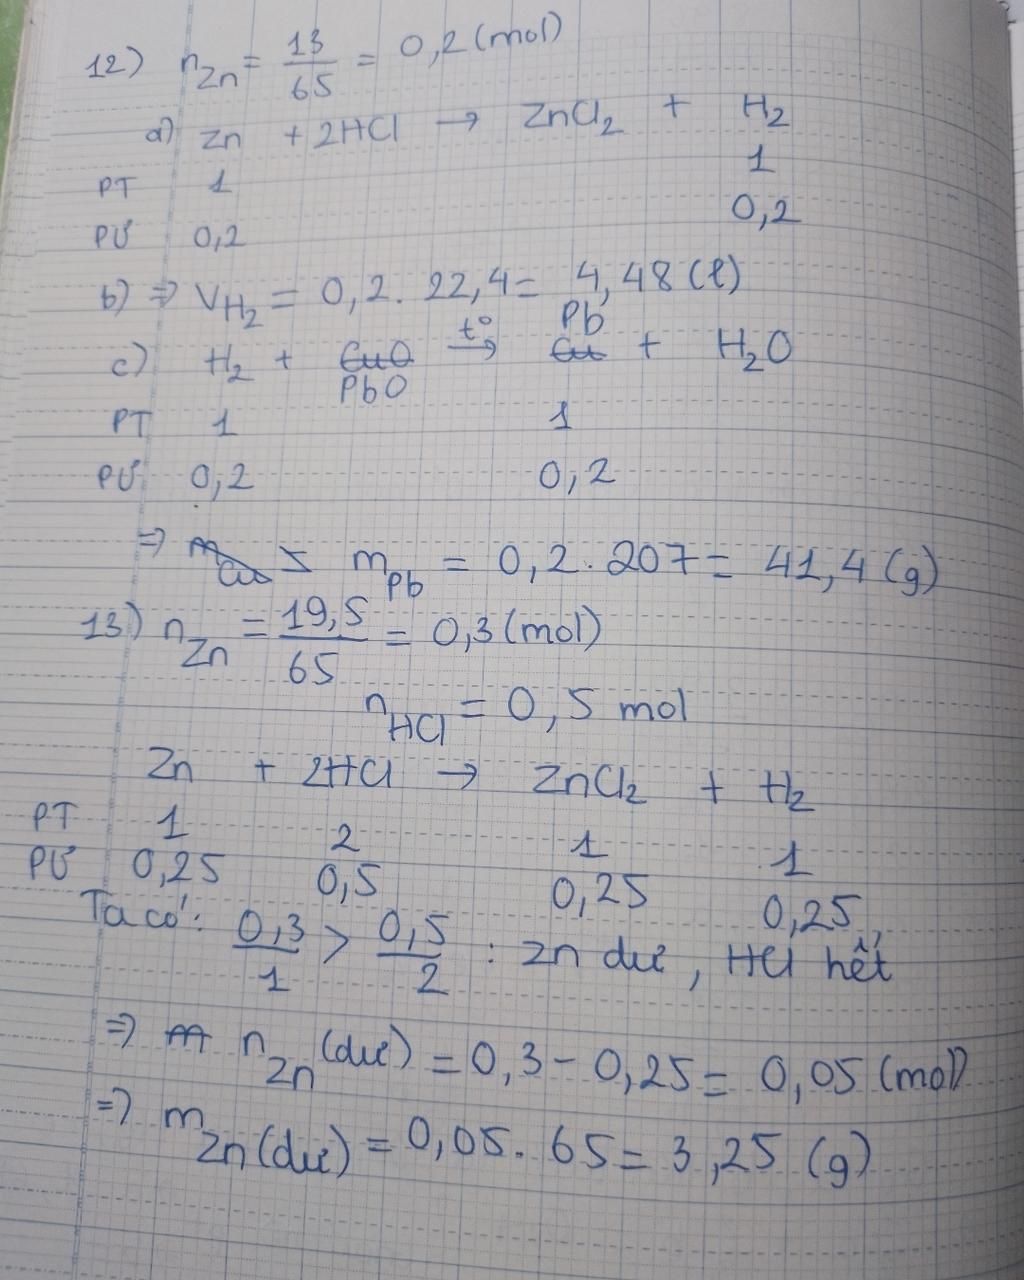 12) nZn = 13/65 = 0,2 (mol)
a) Zn + 2HCl → ZnCl2 + H2
PT 1 1
PƯ 0,2 0,2
b) ⇒ VH2 = 0,2. 22,4 = 4,48 (l)
c) H2 + CuO PbO t° → Cu Pb + H2O
PT 1 1
PƯ 0,2 0,2
⇒ mCu mPb = 0,2. 207 = 41,4 (g)
13) nZn = 19,5/65 = 0,3 (mol)
nHCl = 0,5 mol
Zn + 2HCl → ZnCl2 + H2
PT 1 2 1 1
PƯ 0,25 0,5 0,25 0,25
Ta có: 0,3/1 > 0,5/2 : Zn dư, HCl hết
⇒ m nZn (dư) = 0,3 - 0,25 = 0,05 (mol)
⇒ mZn (dư) = 0,05. 65 = 3,25 (g)